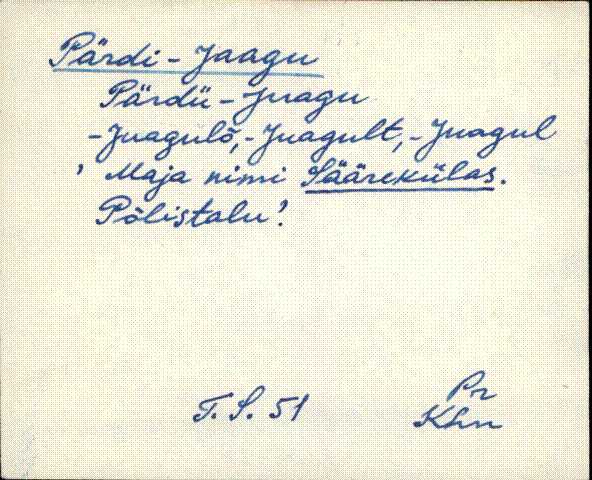 Pärdi-Jaagu
Pärdü-Juagu
-Juagulõ,-Juagult,-Juagul
' Maja nimi Säärekülas.
Põlistalu'.
T. S. 51
Pr
Khn